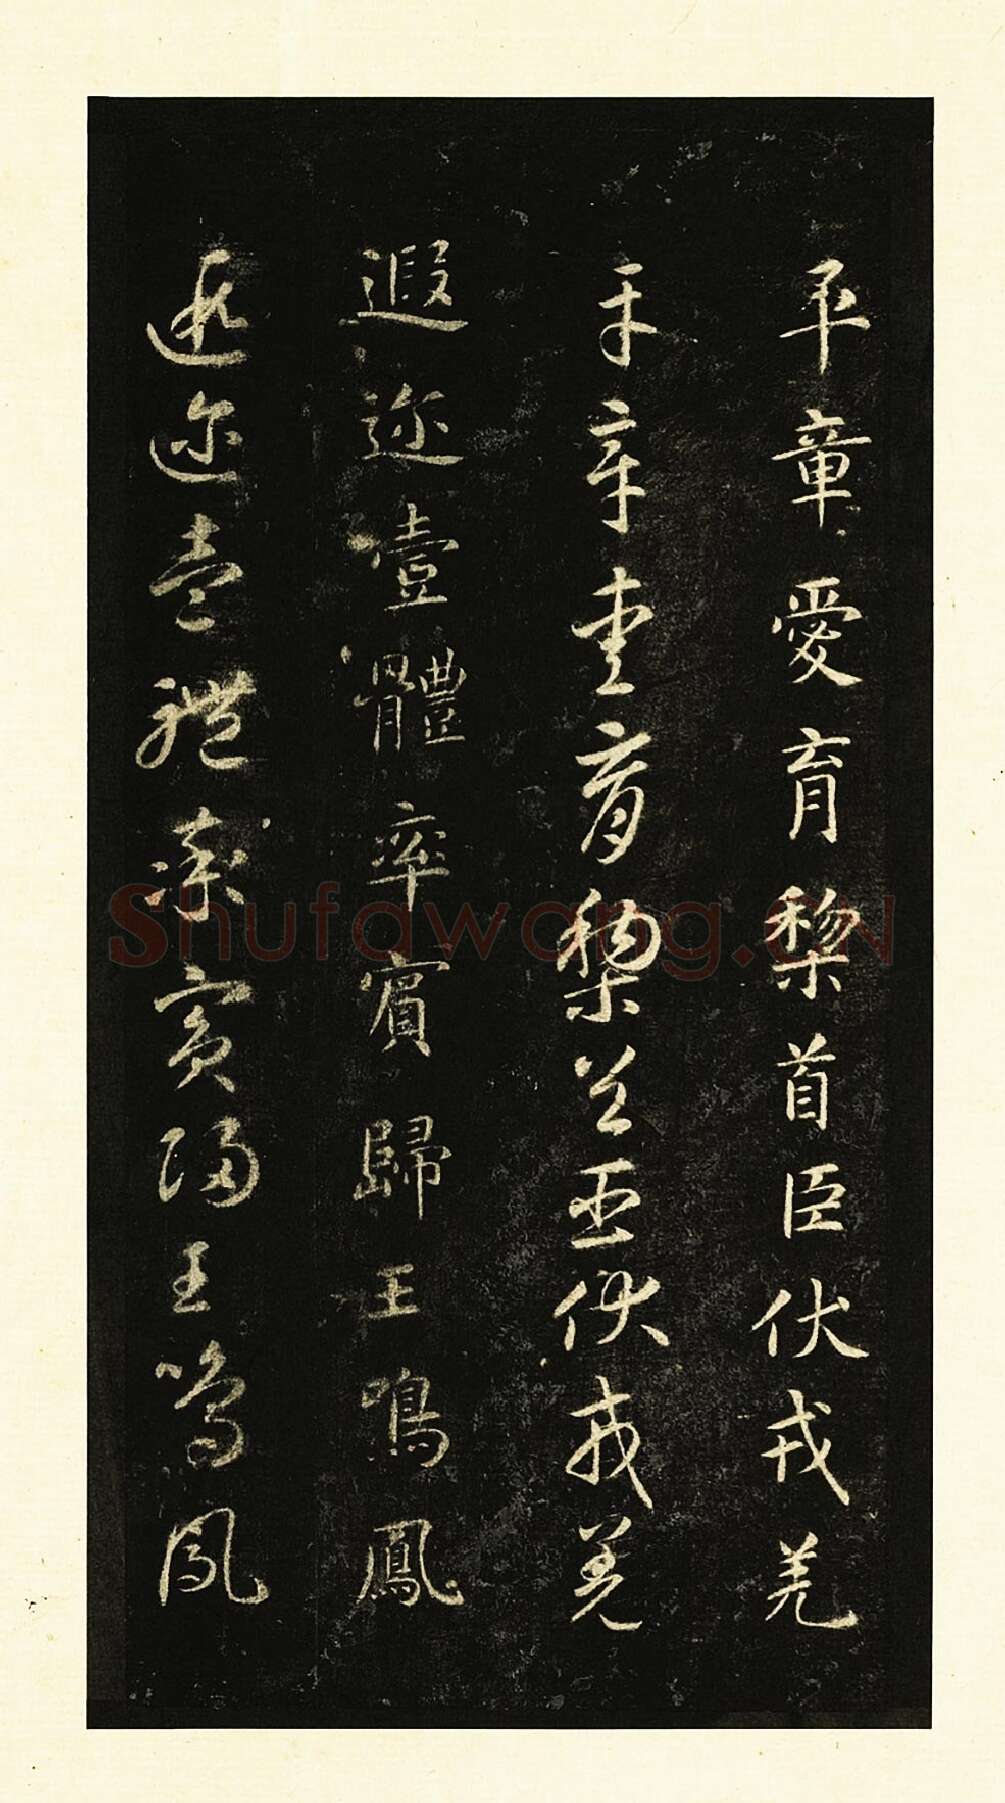 平章愛育黎首臣伏戎羌
平章愛育黎首臣伏戎羌
遐迩壹體率賓歸王鳴鳳
遐迩壹體率賓歸王鳴鳳
Shufawang.CN